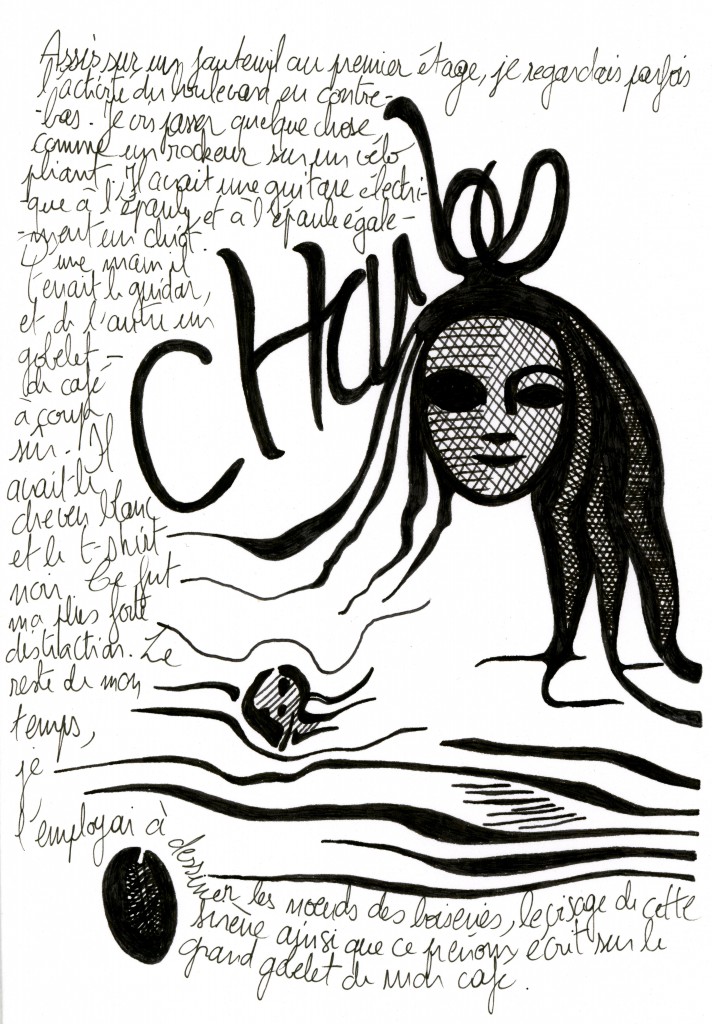 Assis sur un fauteuil au premier étage, je regardais parfois
l'activité du boulevard en contre-
-bas. Je vis passer quelque chose
comme un rockeur sur un vélo
pliant. Il avait une guitare électri-
-que à l'épaule et à l'épaule égale-
-ment un chiot.
D'une main il
tenait le guidon,
et de l'autre un
gobelet
de café
à coup
sûr. Il
avait le
cheveu blanc
et le t-shirt
noir. Ce fut
ma plus forte
distraction. Le
reste de mon
temps,
je
l'employai à
dessiner les nœuds des boiseries, le visage de cette
sirène ainsi que ce prénom écrit sur le
grand gobelet de mon café.
CHarles